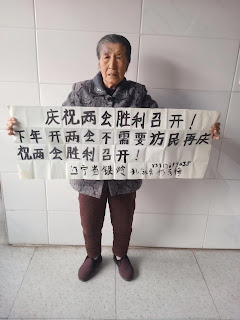 庆祝两会胜利召开！
下年开两会不需要访民再庆
祝两会胜利召开！
辽宁省铁岭